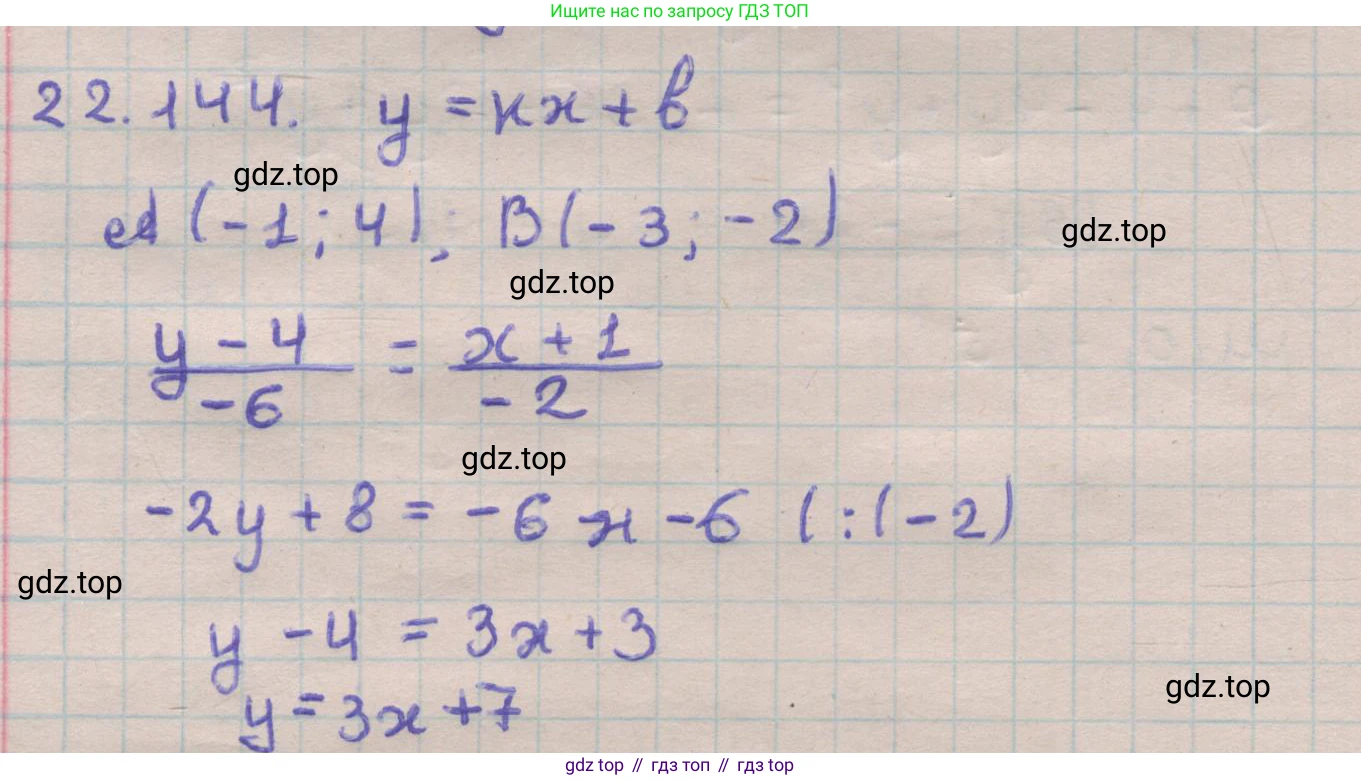 Ищите нас по запросу ГДЗ ТОП
22.144. y = кx + b
gdz.top
A (-1; 4), B (-3; -2)
gdz.top
gdz.top
y - 4 / -6 = x + 1 / -2
gdz.top
-2y + 8 = -6x - 6 | :(-2)
gdz.top
y - 4 = 3x + 3
gdz.top
y = 3x + 7
gdz top // гдз топ // gdz top